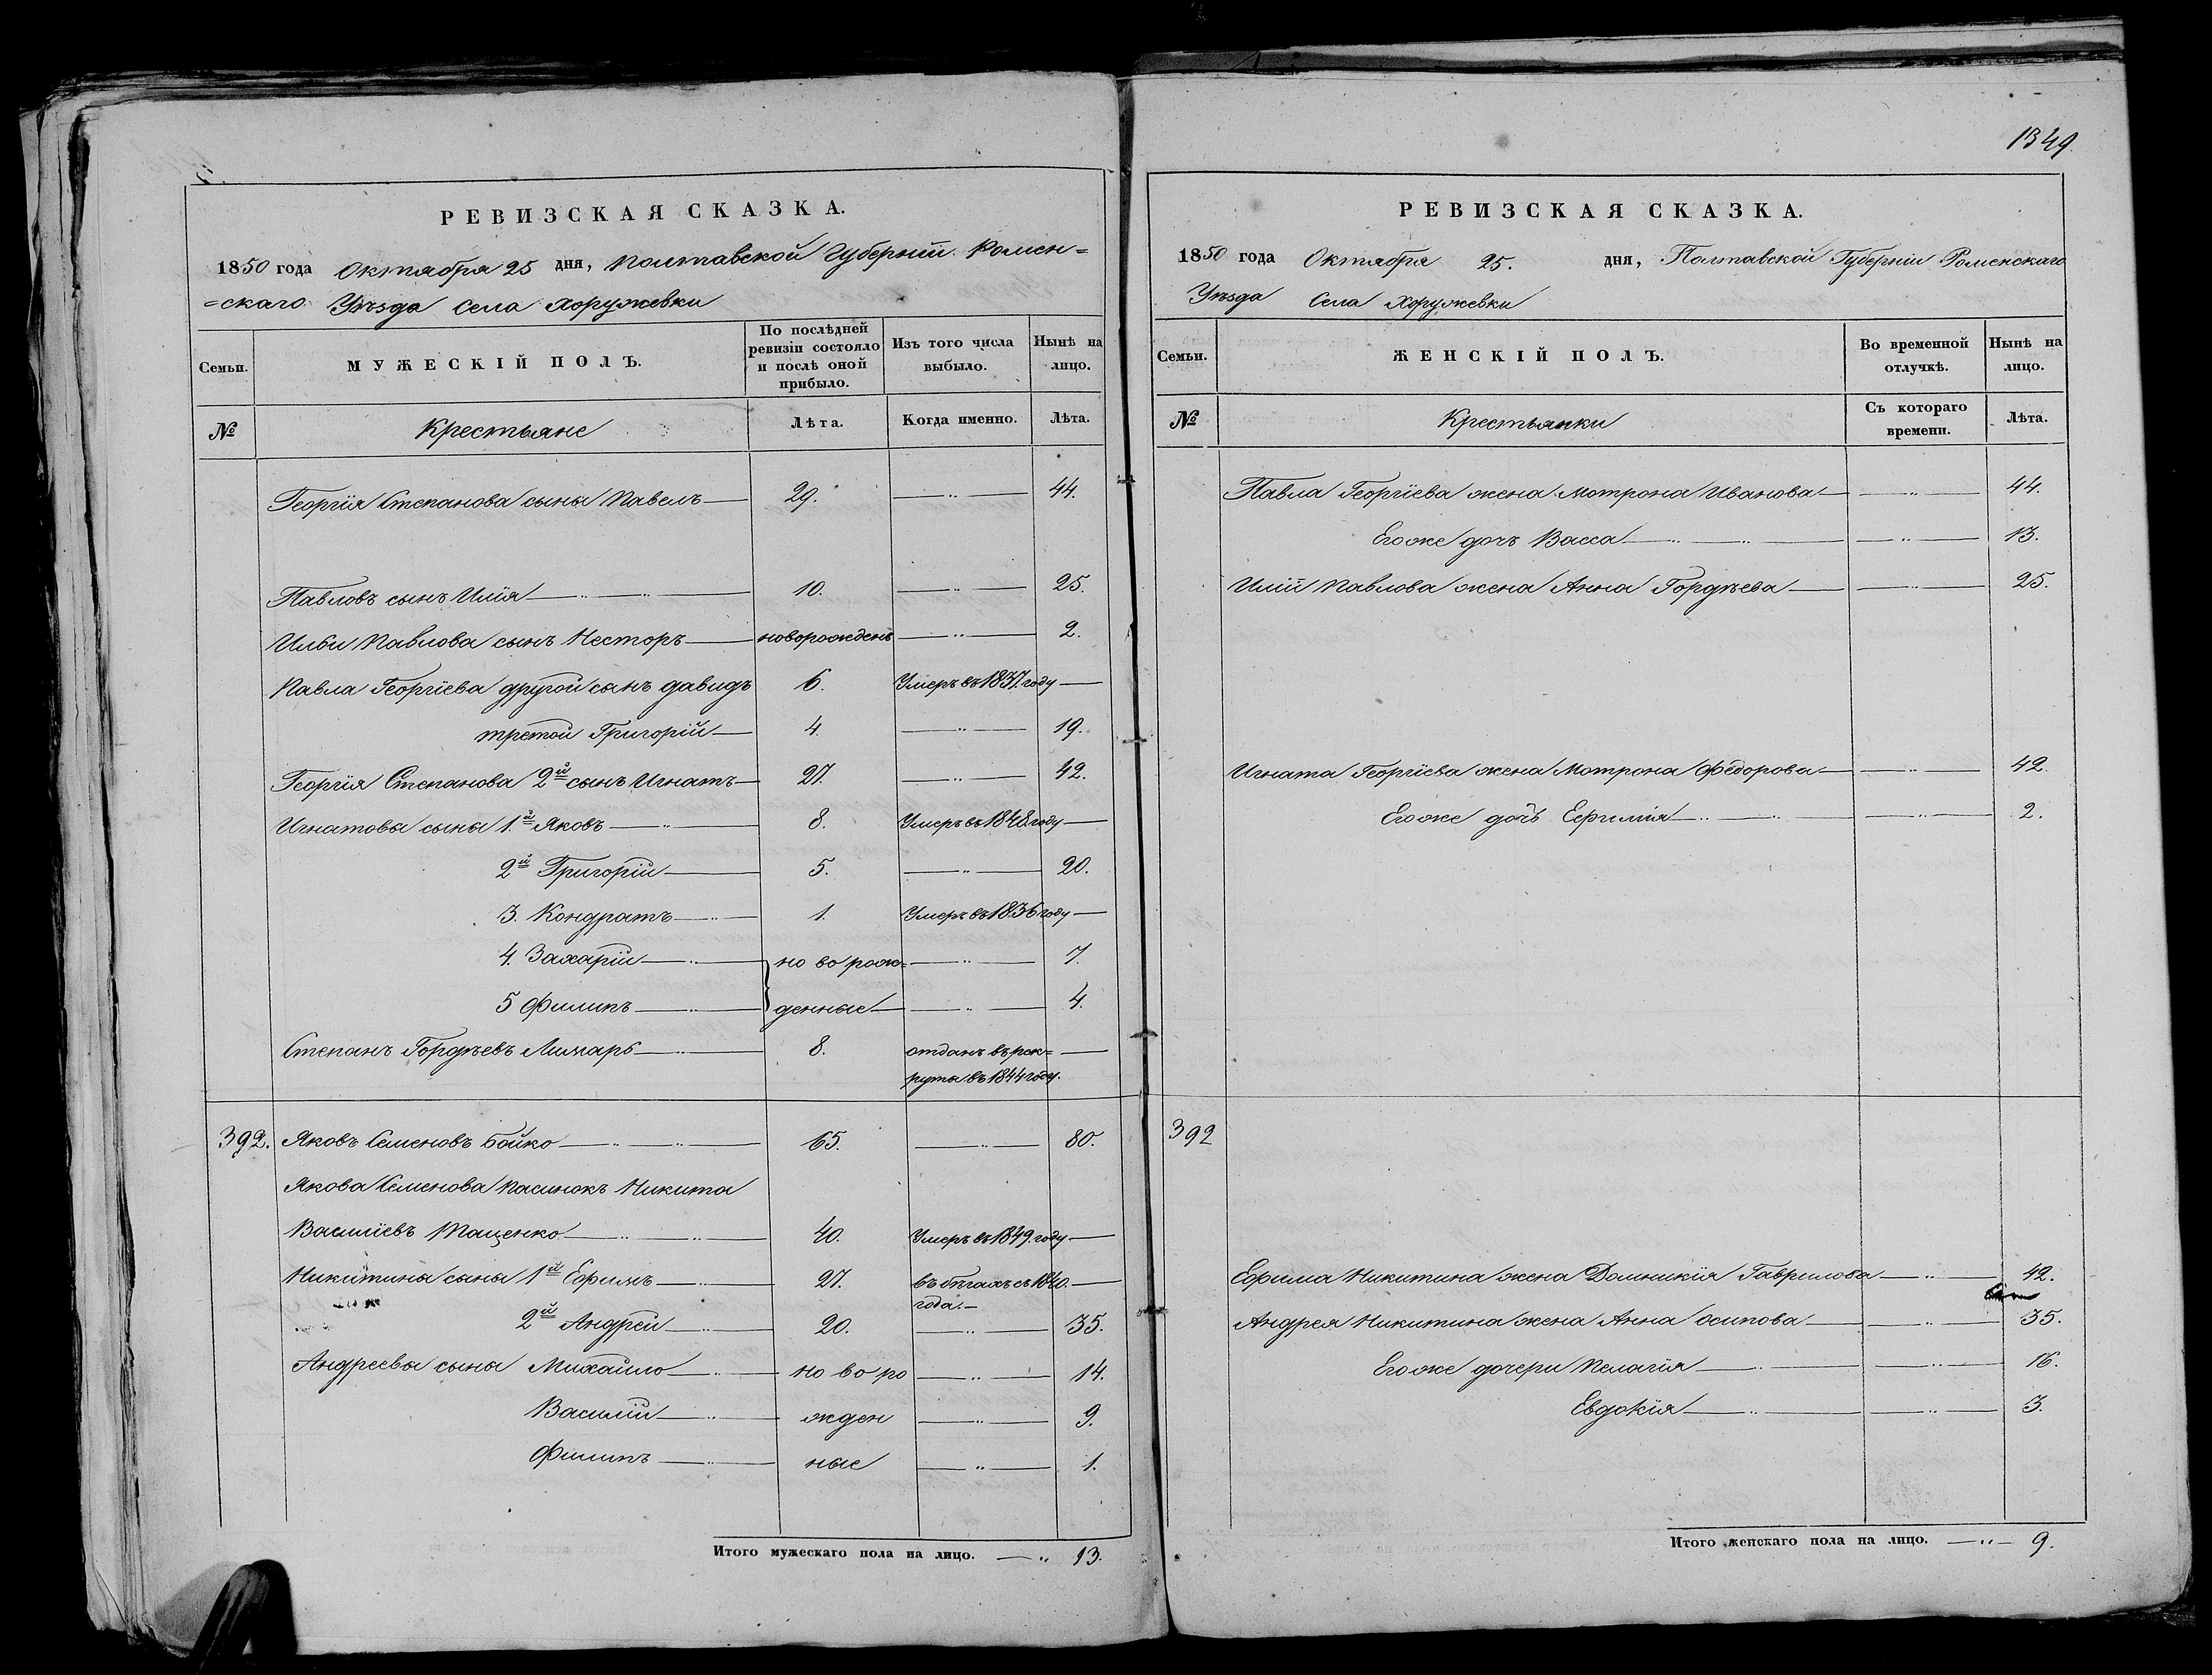 РЕВИЗСКАЯ СКАЗКА.
1850 года Октября 25 дня, Полтавской Губернiи Ромен=
=скаго Уѣзда Села Хоружевки
Семьи. МУЖЕСКІЙ ПОЛЪ. По послѣдней ревизіи состояло и послѣ оной прибыло. Изъ того числа выбыло. Нынѣ на лицо.
№ Крестьяне Лѣта. Когда именно. Лѣта.
Георгія Степанова сыны Павелъ 29. — 44.
Павловъ сынъ Илія 10. — 25.
Ильи Павлова сынъ Несторъ новорожденъ — 2.
Павла Георгіева другой сынъ Давидъ 6. Умеръ въ 1837. году —
третой Григорій 4. — 19.
Георгія Степанова 2й сынъ Игнатъ 27. — 42.
Игнатовы сыны 1.й Яковъ 8. Умеръ въ 1848. году —
2й Григорій 5. — 20.
3. Кондратъ 1. Умеръ въ 1836 году —
4. Захарій но во рож= — 7.
5 Филипъ денные — 4.
Степанъ Гордѣевъ Лимарь 8. отданъ въ рек= —
руты въ 1844 году.
392. Яковъ Семеновъ Бойко 65. — 80.
Якова Семенова пасинокъ Никита
Василіевъ Тащенко 40. Умеръ въ 1849. году —
Никитины сыны 1й Ефимъ 27. въ бѣгахъ съ 1840. —
года. —
2й Андрей 20. — 35.
Андреевы сыны Михайло но во ро — 14.
Василій жден — 9.
Филипъ ные — 1.
Итого мужескаго пола на лицо. — 13.
1349
РЕВИЗСКАЯ СКАЗКА.
1850 года Октября 25. дня, Полтавской Губерніи Роменскаго
Уѣзда Села Хоружевки
Семьи. ЖЕНСКІЙ ПОЛЪ. Во временной отлучкѣ. Нынѣ на лицо.
№ Крестьянки Съ котораго времени. Лѣта.
Павла Георгіева жена Мотрона Иванова — 44.
Егоже дочь Васса — 13.
Иліи Павлова жена Анна Гордѣева — 25.
Игната Георгіева жена Мотрона Федорова — 42.
Егоже дочь Ефимія — 2.
392
Ефима Никитина жена Домникія Гаврилова — 42.
Андрея Никитина жена Анна Осипова — 35.
Егоже дочери Пелагія — 16.
Евдокія — 3.
Итого женскаго пола на лицо. — 9.